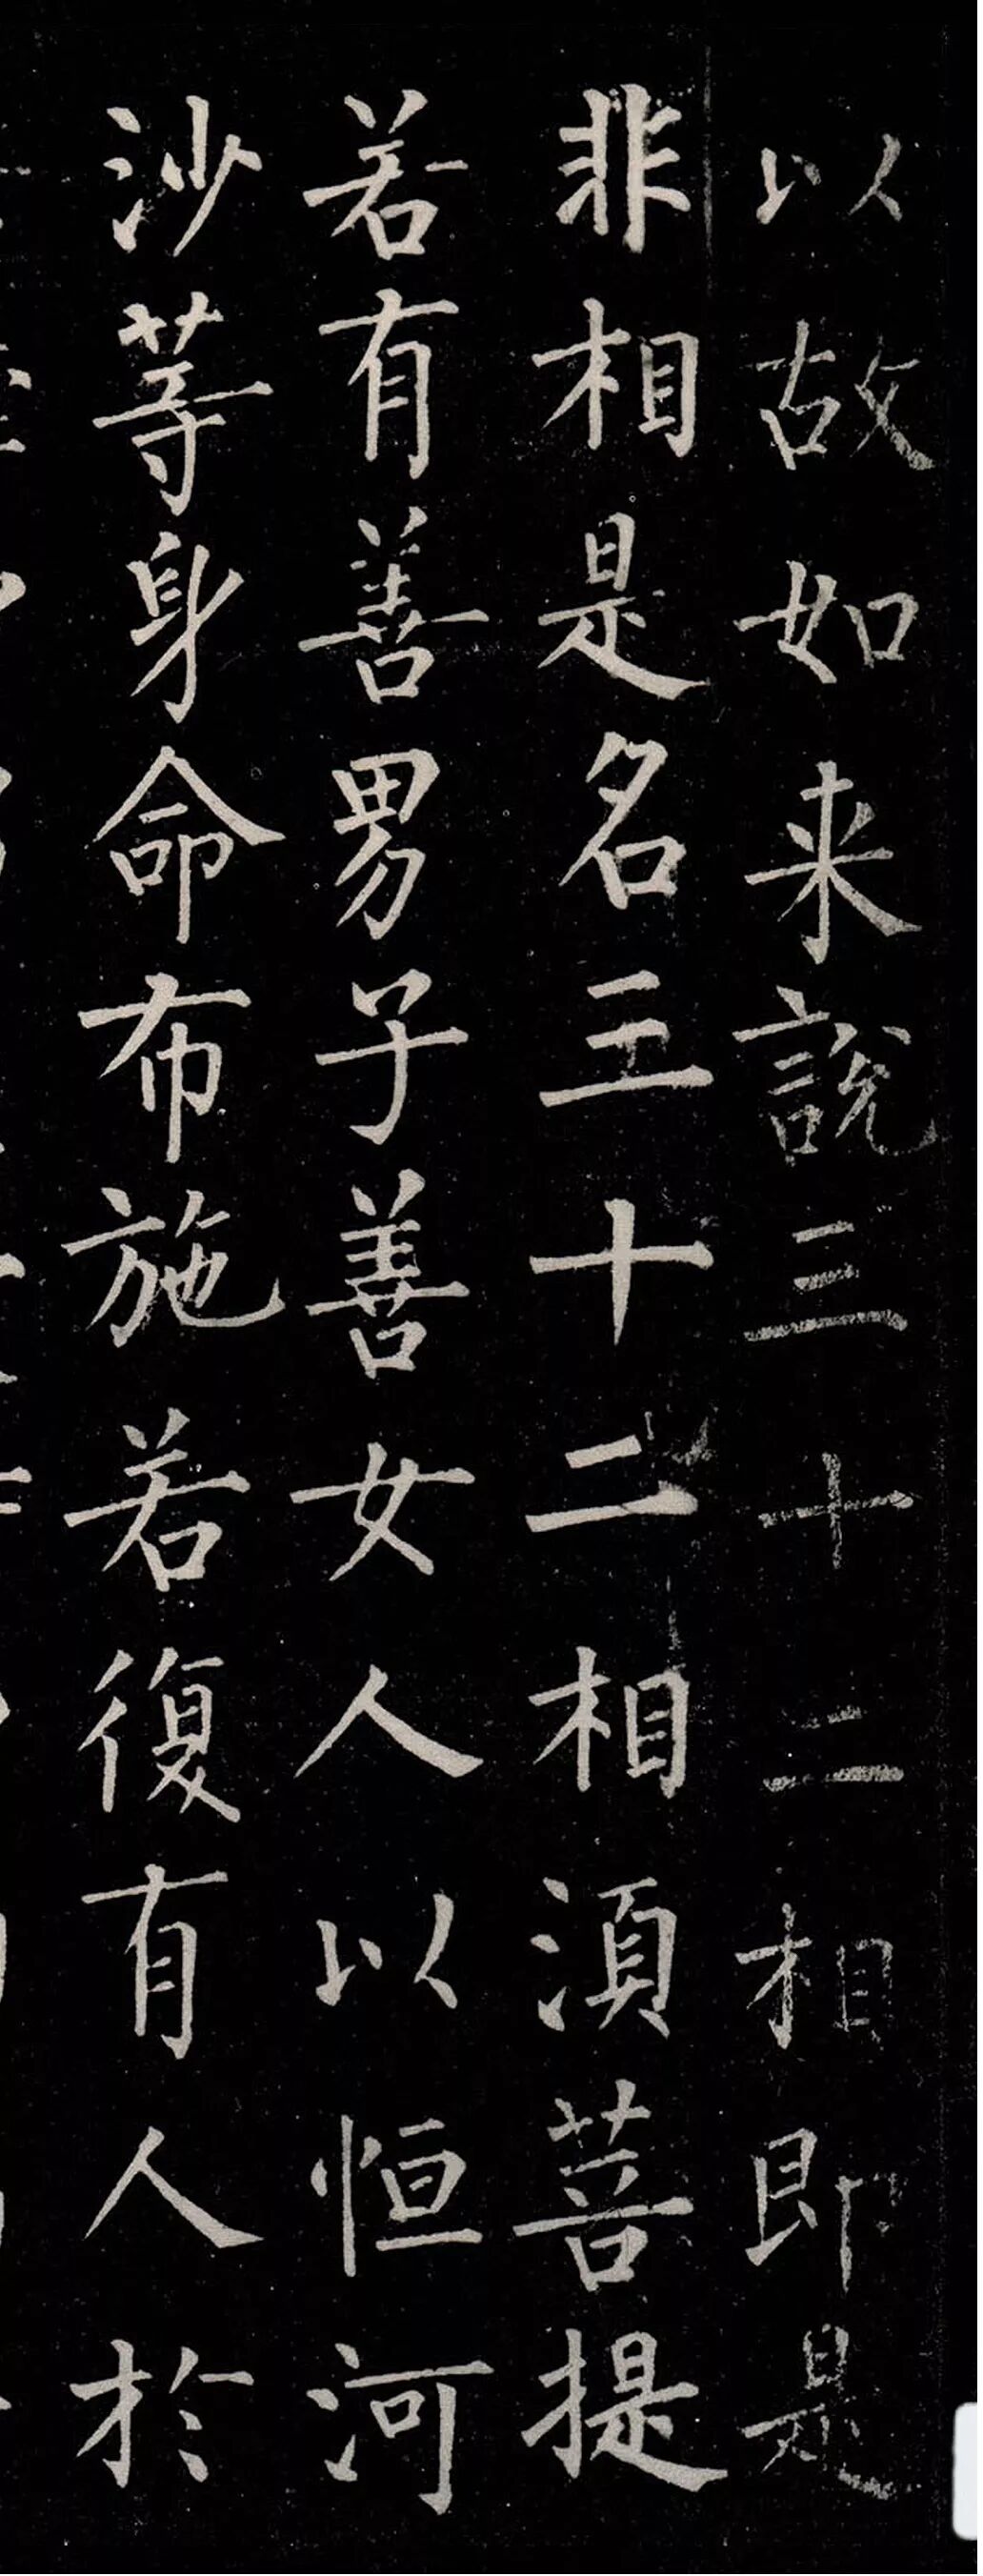 以故如来說三十二相即是
非相是名三十二相湏菩提
若有善男子善女人以恒河
沙等身命布施若復有人於